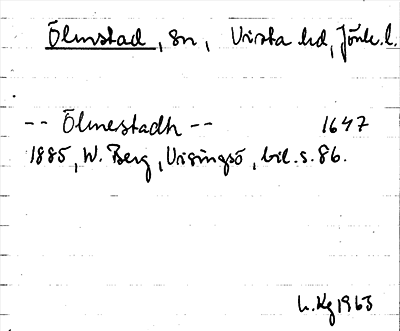 Ölmstad, sn, Vista hd, Jönk.l.
-- Ölmestadh -- 1647
1885, W. Berg, Visingsö, bil. s. 86.
L. Kg 1963